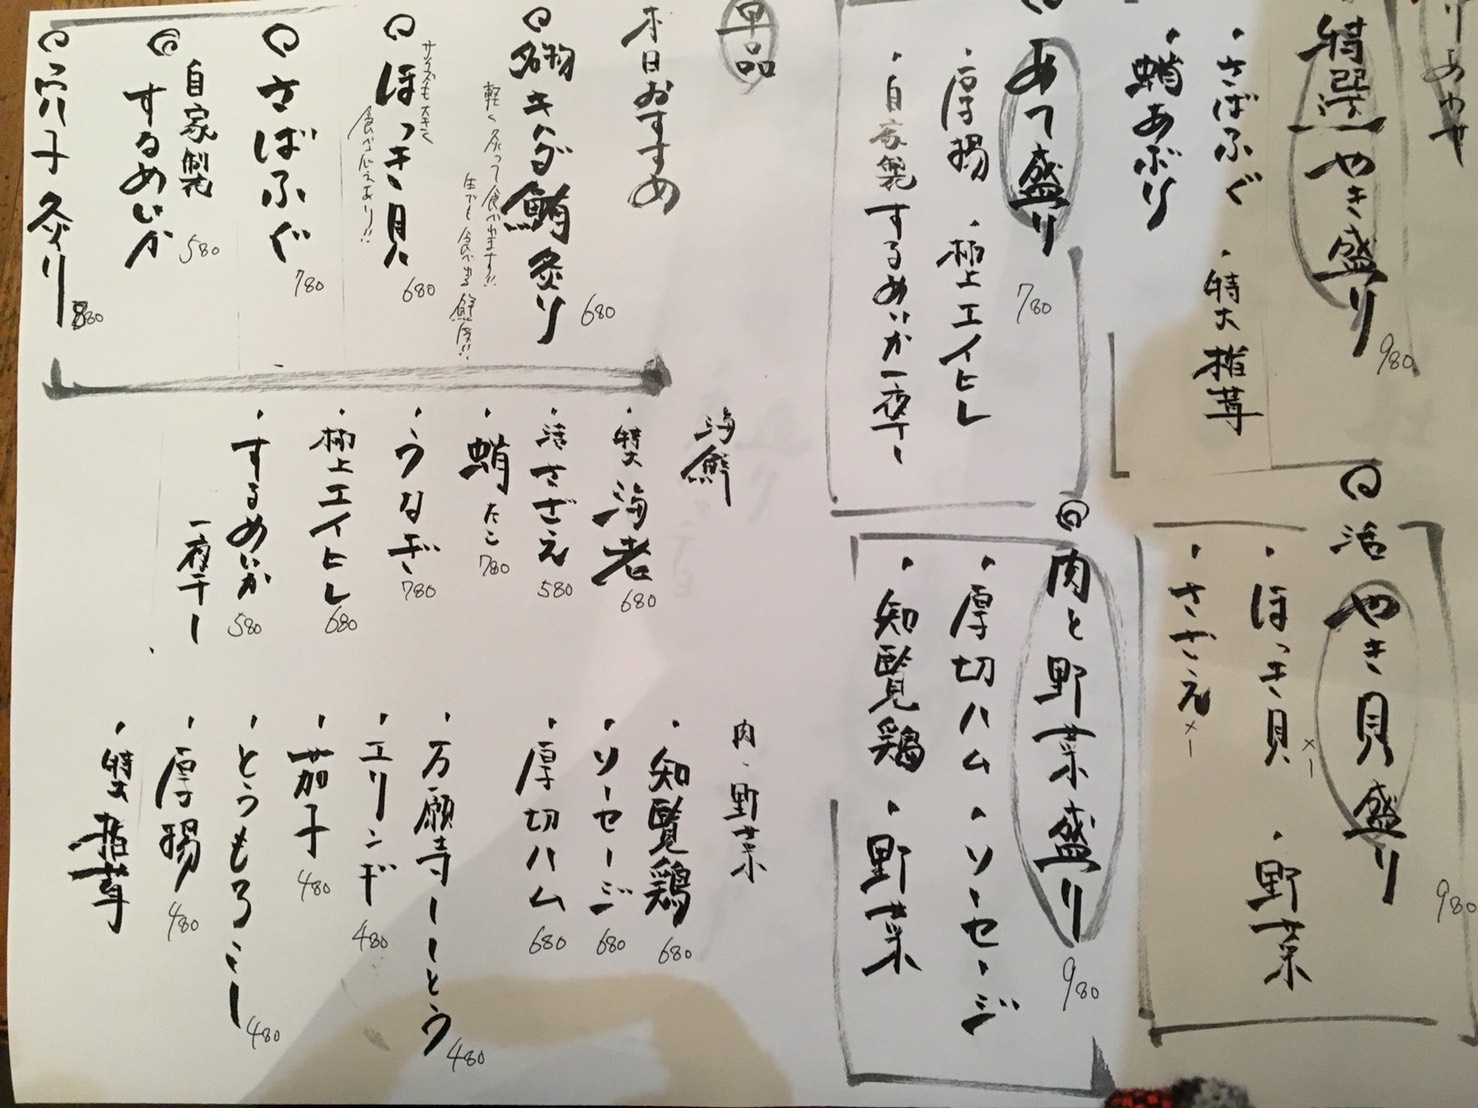 りあわせ
特選 やき盛り 980
・さばふぐ ・特大椎茸
・蛸あぶり
活 やき貝盛り 980
・ほっき貝×1 ・野菜
・さざえ×1
あて盛り 780
・厚揚 ・極上エイヒレ
・自家製するめいか一夜干し
肉と野菜盛り 980
・厚切ハム ・ソーセージ
・知覧鶏 ・野菜
単品
本日おすすめ
キハダ鮪炙り 680
軽く炙って食べれます!!
生でも食べれる鮮度!!
ほっき貝 680
サイズも大きく
食べごたえあり!!
さばふぐ 780
自家製
するめいか 580
穴子炙り 880
海鮮
・特大海老 680
・活さざえ 580
・蛸たこ 780
・うなぎ 780
・極上エイヒレ 680
・するめいか
一夜干し 580
肉・野菜
・知覧鶏 680
・ソーセージ 680
・厚切ハム 680
・万願寺とうがらし 480
・エリンギ 480
・茄子 480
・とうもろこし 480
・厚揚 480
・特大椎茸